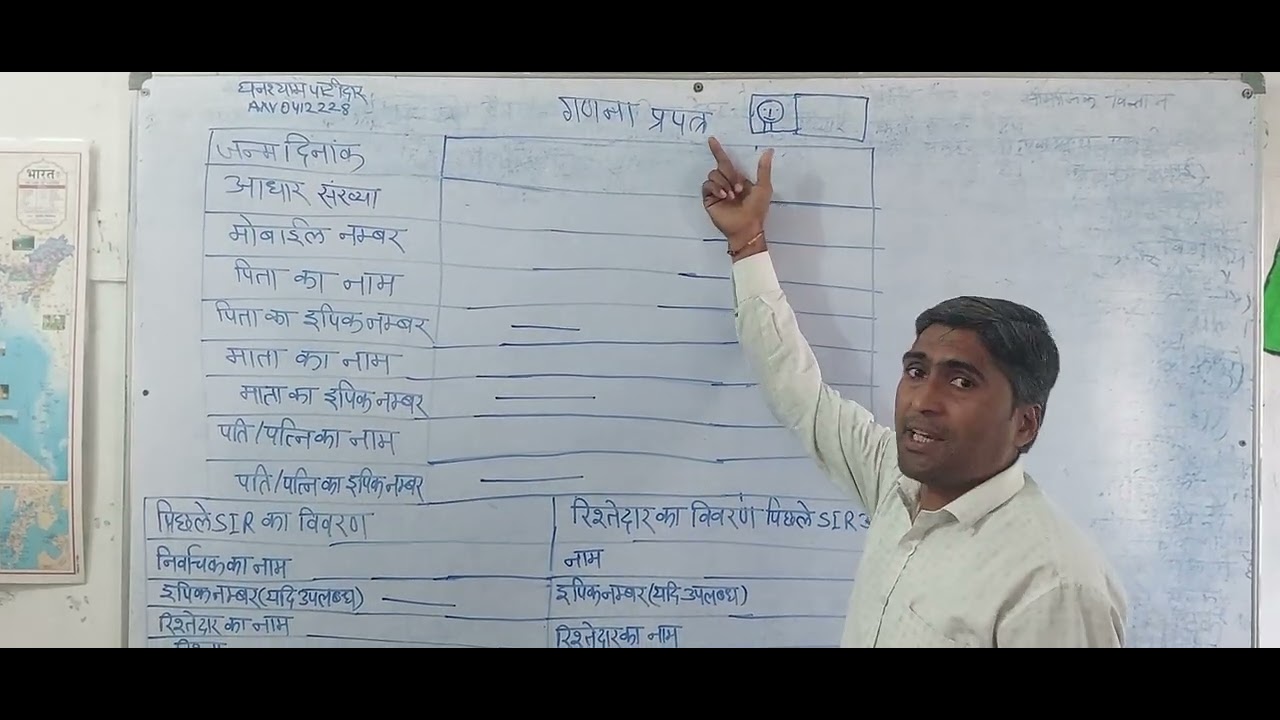 घनश्याम पाटीदार
AAV0412228
गणना प्रपत्र
जन्म दिनांक
आधार संख्या
मोबाईल नम्बर
पिता का नाम
पिता का इपिक नम्बर
माता का नाम
माता का इपिक नम्बर
पति/पत्नि का नाम
पति/पत्नि का इपिक नम्बर
पिछले SIR का विवरण
निर्वाचक का नाम
इपिक नम्बर (यदि उपलब्ध)
रिश्तेदार का नाम
रिश्तेदार का विवरण पिछले SIR
नाम
इपिक नम्बर (यदि उपलब्ध)
रिश्तेदार का नाम
सामाजिक विज्ञान
भारत